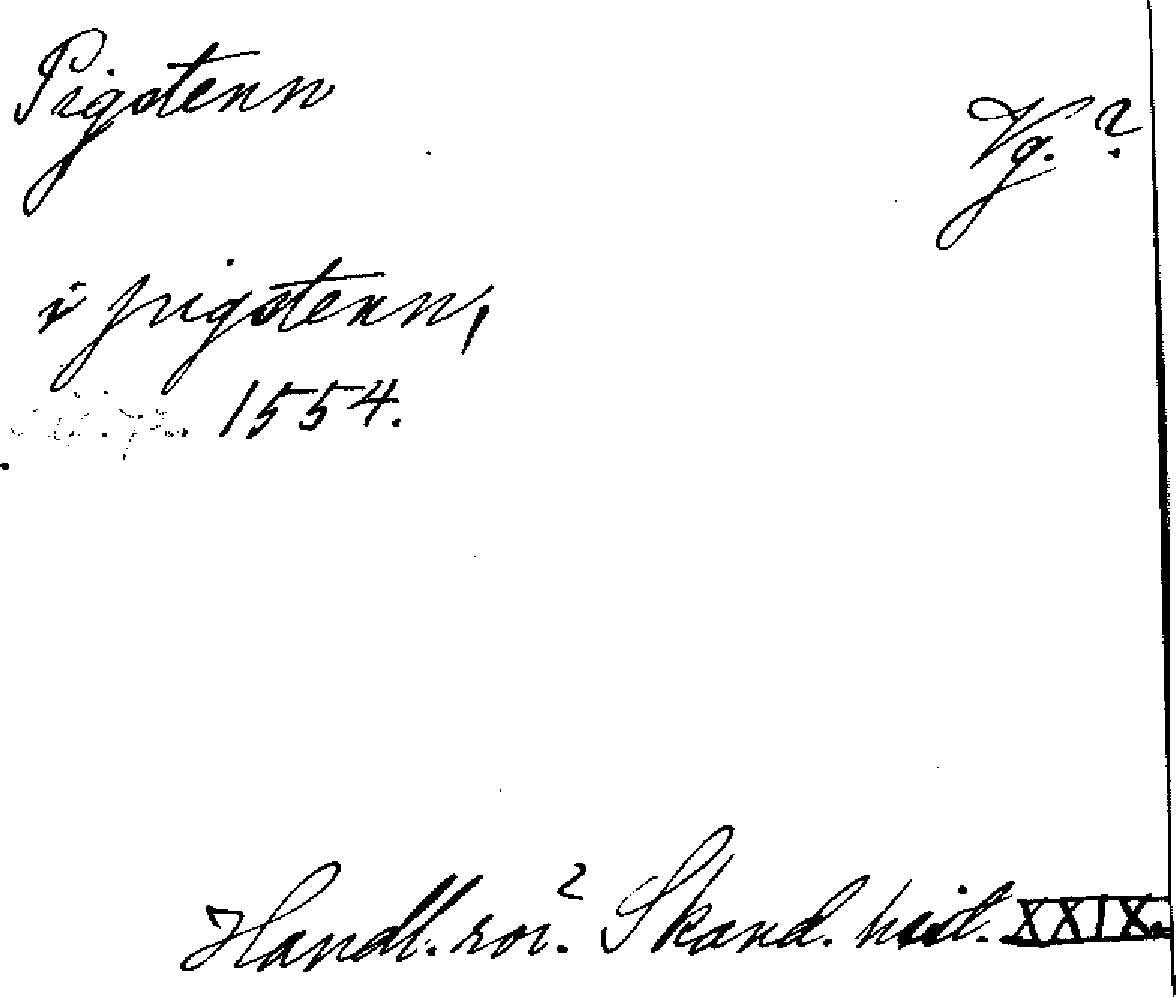 Pigstenn
Vg. ?
i pigstenn,
1554.
Handl. rör? Skand. hist. XXIX.